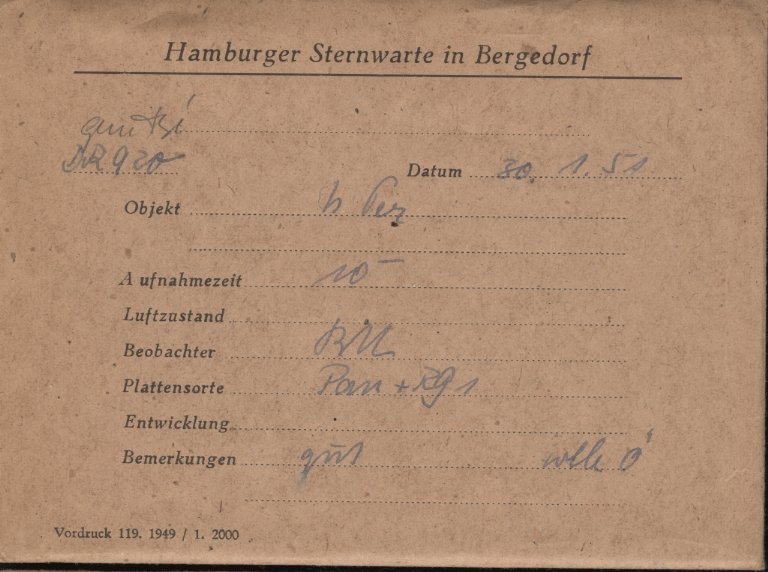 Hamburger Sternwarte in Bergedorf
DR 920
Datum 30. 1. 51
Objekt h Per
Aufnahmezeit 10
Luftzustand
Beobachter
Plattensorte Pan + Rg 1
Entwicklung
Bemerkungen gut
Vordruck 119. 1949 / 1. 2000